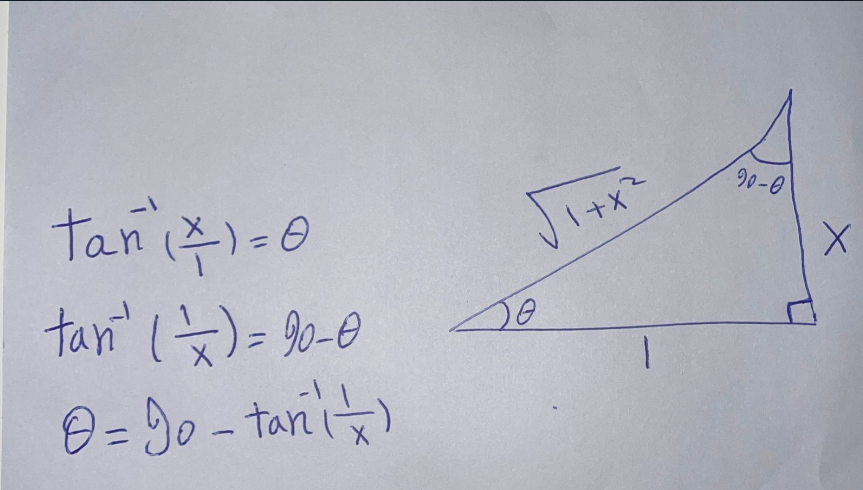 tan⁻¹(x/1) = θ
tan⁻¹(1/x) = 90-θ
θ = 90 - tan⁻¹(1/x)
√1+x²
90-θ
x
θ
1